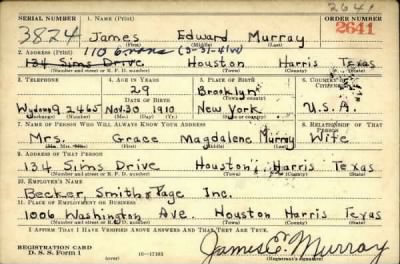 2641
SERIAL NUMBER 1. NAME (Print) ORDER NUMBER
3824 James Edward Murray 2641
(First) (Middle) (Last)
2. ADDRESS (Print) 110 (3-31-41
134 Sims Drive Houston Harris Texas
(Number and street or R. F. D. number) (Town) (County) (State)
3. TELEPHONE 4. AGE IN YEARS 5. PLACE OF BIRTH 6. COUNTRY OF CITIZENSHIP
29 Brooklyn
DATE OF BIRTH (Town or county)
2465 Nov. 30, 1910 New York U.S.A.
(Exchange) (Number) (Mo.) (Day) (Yr.) (State or country)
7. NAME OF PERSON WHO WILL ALWAYS KNOW YOUR ADDRESS RELATIONSHIP OF THAT PERSON
Mrs. Grace Magdalene Murray Wife
(Mr., Mrs., Miss) (First) (Middle) (Last)
9. ADDRESS OF THAT PERSON
134 Sims Drive Houston, Harris Texas
(Number and street or R. F. D. number) (Town) (County) (State)
10. EMPLOYER'S NAME
Becker, Smith & Page Inc.
11. PLACE OF EMPLOYMENT OR BUSINESS
1006 Washington Ave. Houston Harris Texas
(Number and street or R. F. D. number) (Town) (County) (State)
I AFFIRM THAT I HAVE VERIFIED ABOVE ANSWERS AND THAT THEY ARE TRUE.
REGISTRATION CARD
D. S. S. Form 1 (over) 16—17105 James E. Murray
(Registrant's signature)